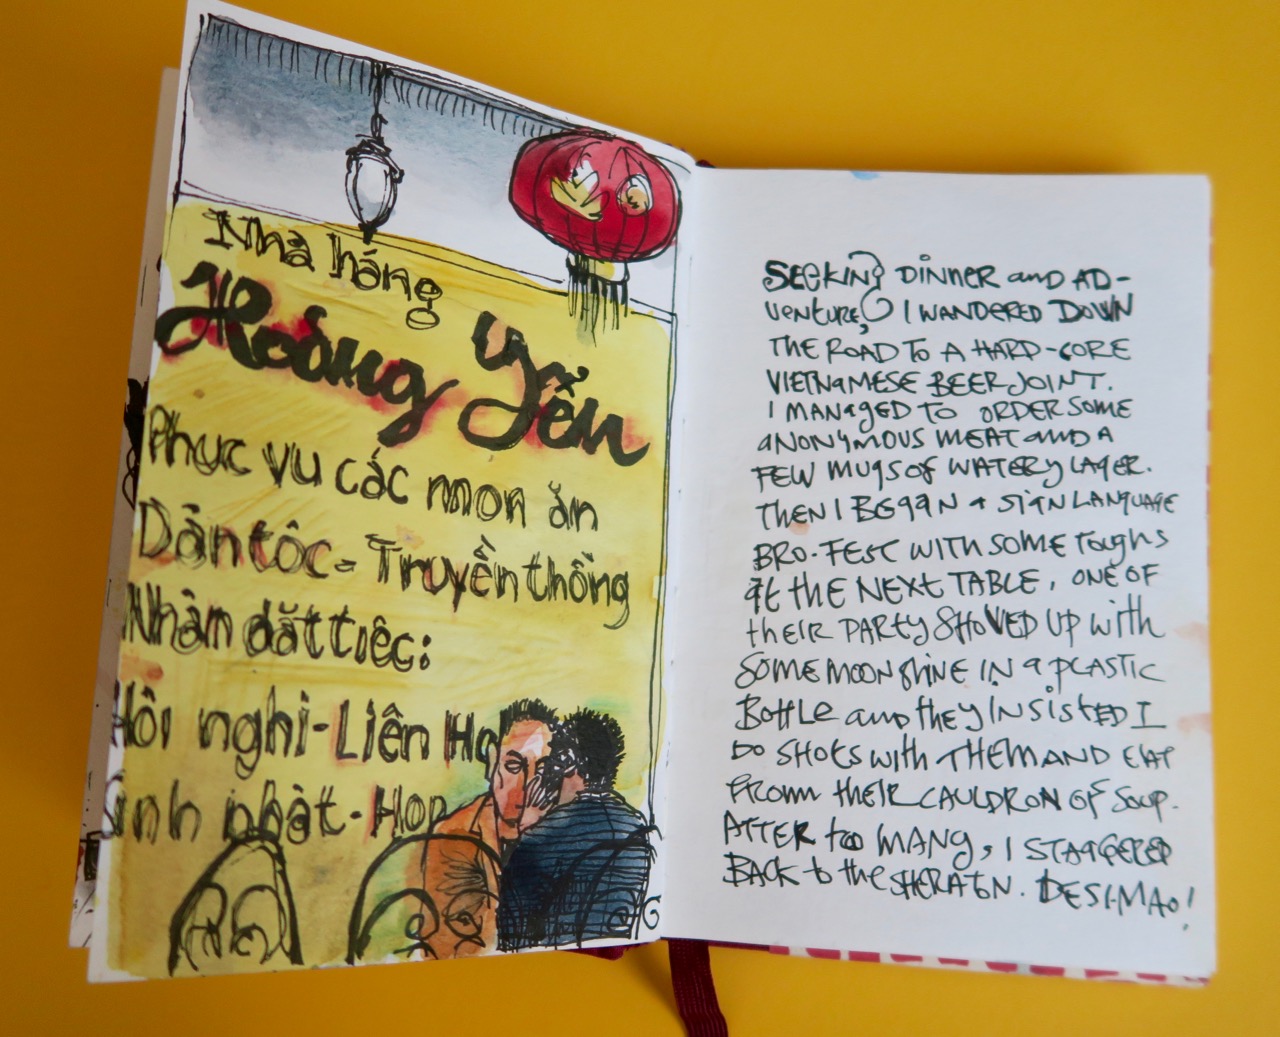 Nhà háng
Hoàng Yến
Phục vu các mon ăn
Dân tôc - Truyền thông
Nhân dăt tiêc:
Hôi nghi - Liên Ho
inh nhât - Hop
SEEKING DINNER and AD-
VENTURE, I WANDERED DOWN
THE ROAD TO A HARD-CORE
VIETNAMESE BEER JOINT.
I MANAGED TO ORDER SOME
ANONYMOUS MEAT and A
FEW MUGS of WATERY LAGER.
THEN I BEGAN A SIGN LANGUAGE
BRO-FEST WITH SOME TOUGHS
at the NEXT TABLE, ONE OF
their PARTY SHOVED UP with
SOME MOONSHINE IN a PLASTIC
BOTTLE and they INSISTED I
DO SHOTS with THEM AND EAT
FROM their CAULDRON OF SOUP.
AFTER too MANY, I STAGGERED
BACK to the SHERATON. DESI-MAO!